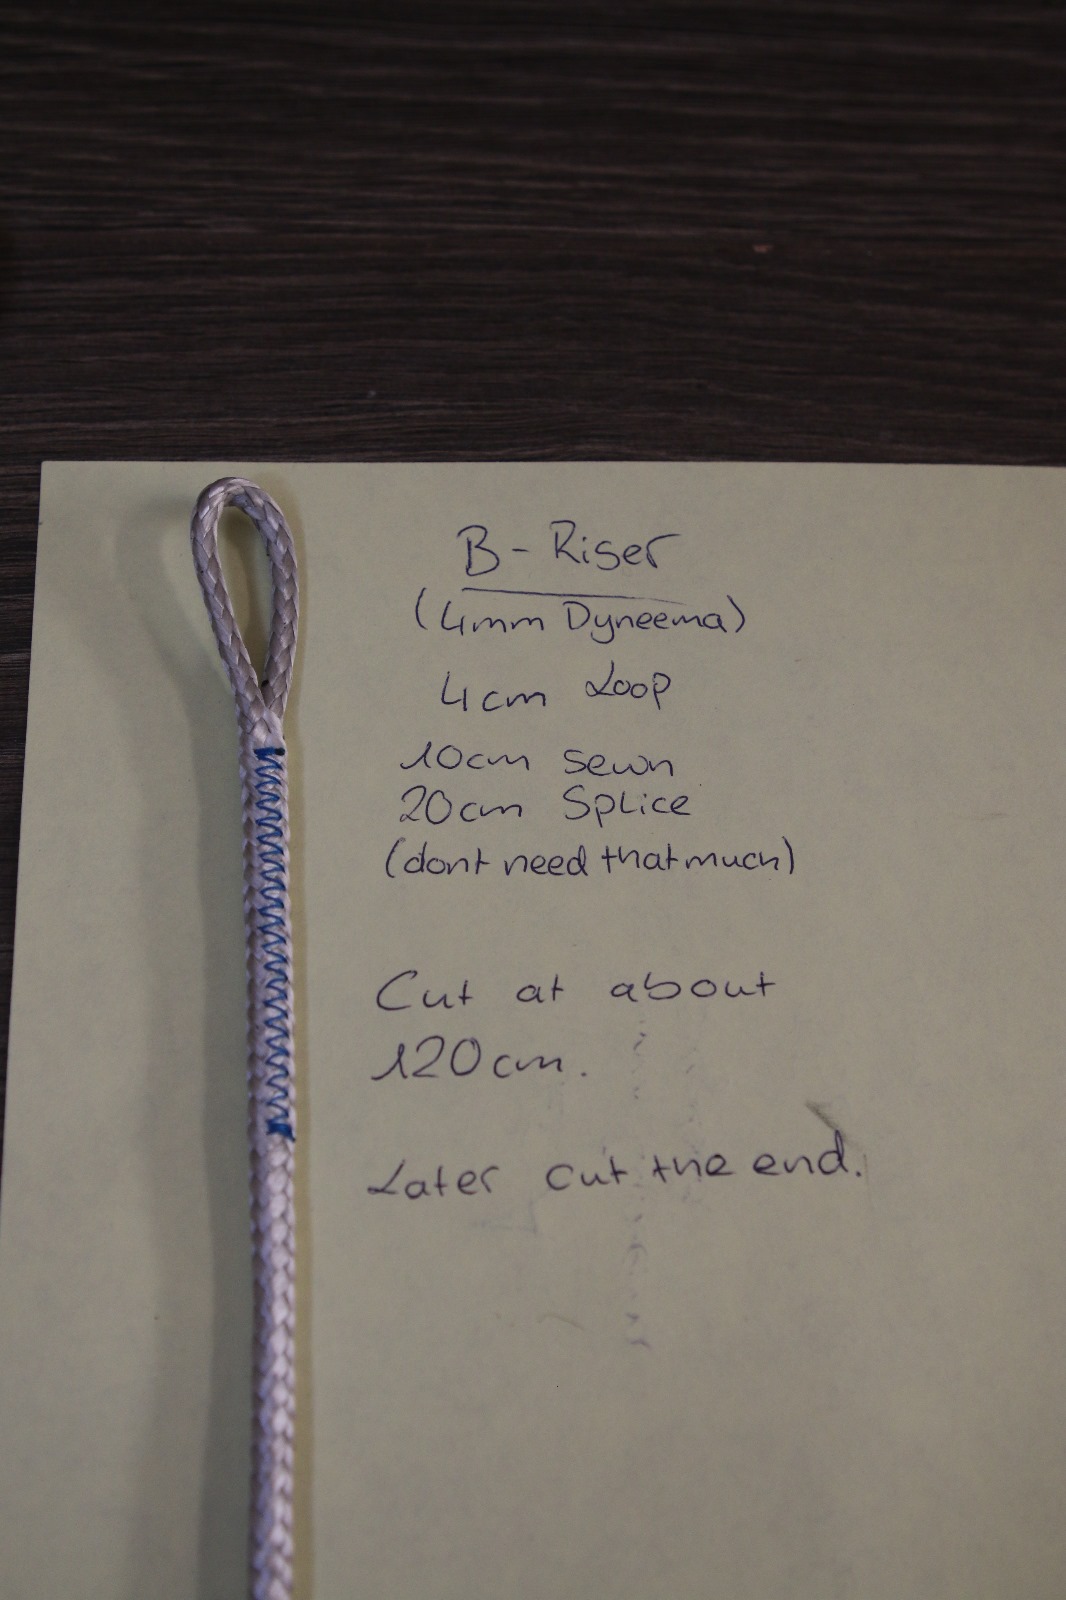 B - Riser
(4mm Dyneema)
4cm Loop
10cm sewn
20cm Splice
(dont need that much)
Cut at about
120cm.
Later cut the end.